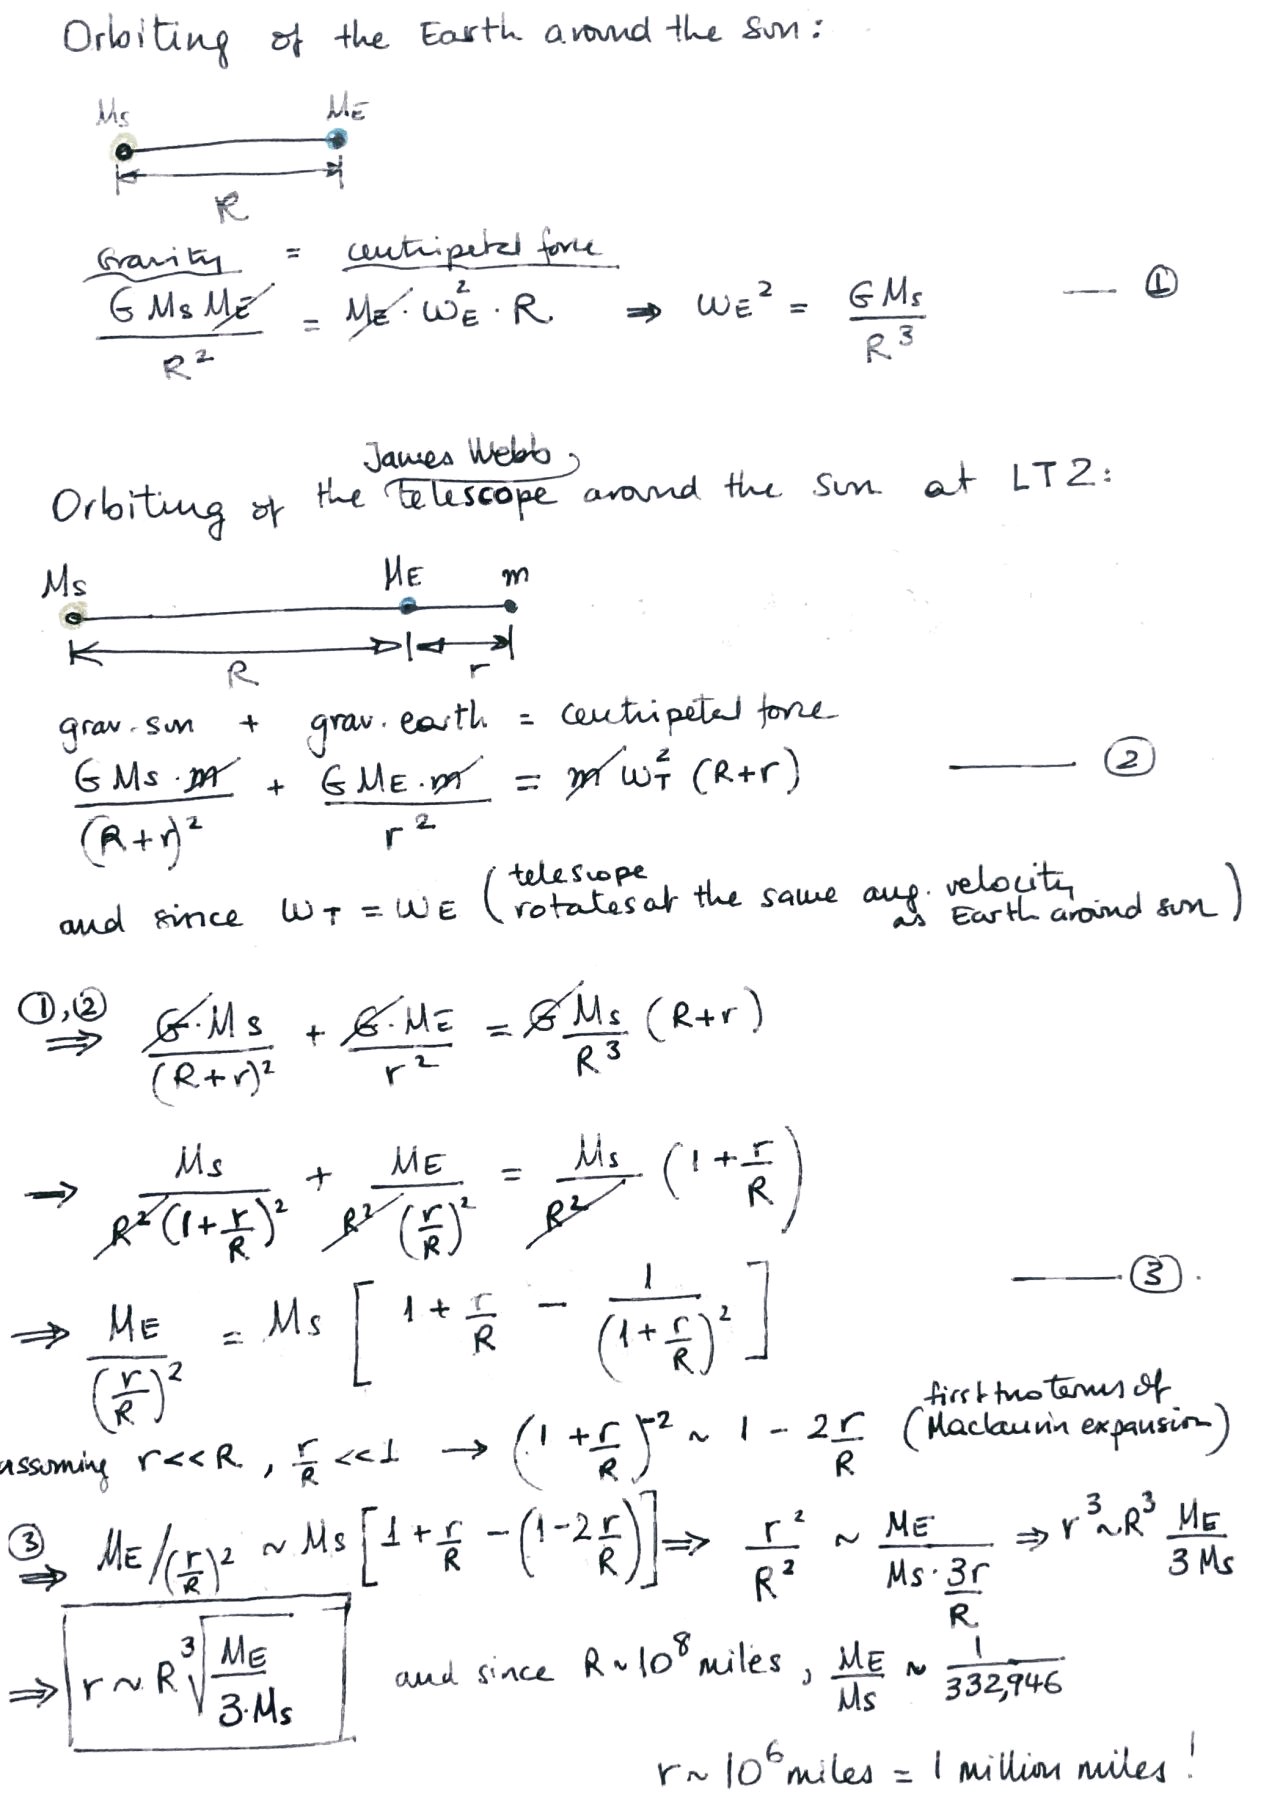 Orbiting of the Earth around the Sun:
Ms ME
R
Gravity = centripetal force
G Ms ME / R² = ME · ωE² · R ⇒ ωE² = G Ms / R³ — ①
James Webb
Orbiting of the telescope around the Sun at LT2:
Ms ME m
R r
grav. sun + grav. earth = centripetal force
G Ms · m / (R+r)² + G ME · m / r² = m ωT² (R+r) — ②
and since ωT = ωE (telescope rotates at the same ang. velocity as Earth around sun)
①,② ⇒ G·Ms / (R+r)² + G·ME / r² = G Ms / R³ (R+r)
→ Ms / R²(1+r/R)² + ME / R²(r/R)² = Ms / R² (1+r/R)
⇒ ME / (r/R)² = Ms [1 + r/R − 1 / (1+r/R)²] — ③.
assuming r<<R, r/R <<1 → (1+r/R)⁻² ~ 1 − 2r/R (first two terms of Maclaurin expansion)
③ ⇒ ME/(r/R)² ~ Ms [1+r/R − (1−2r/R)] ⇒ r²/R² ~ ME / Ms·3r/R ⇒ r³~R³ ME / 3Ms
⇒ r ~ R ∛(ME / 3·Ms) and since R~10⁸ miles, ME/Ms ~ 1/332,946
r~10⁶ miles = 1 million miles!